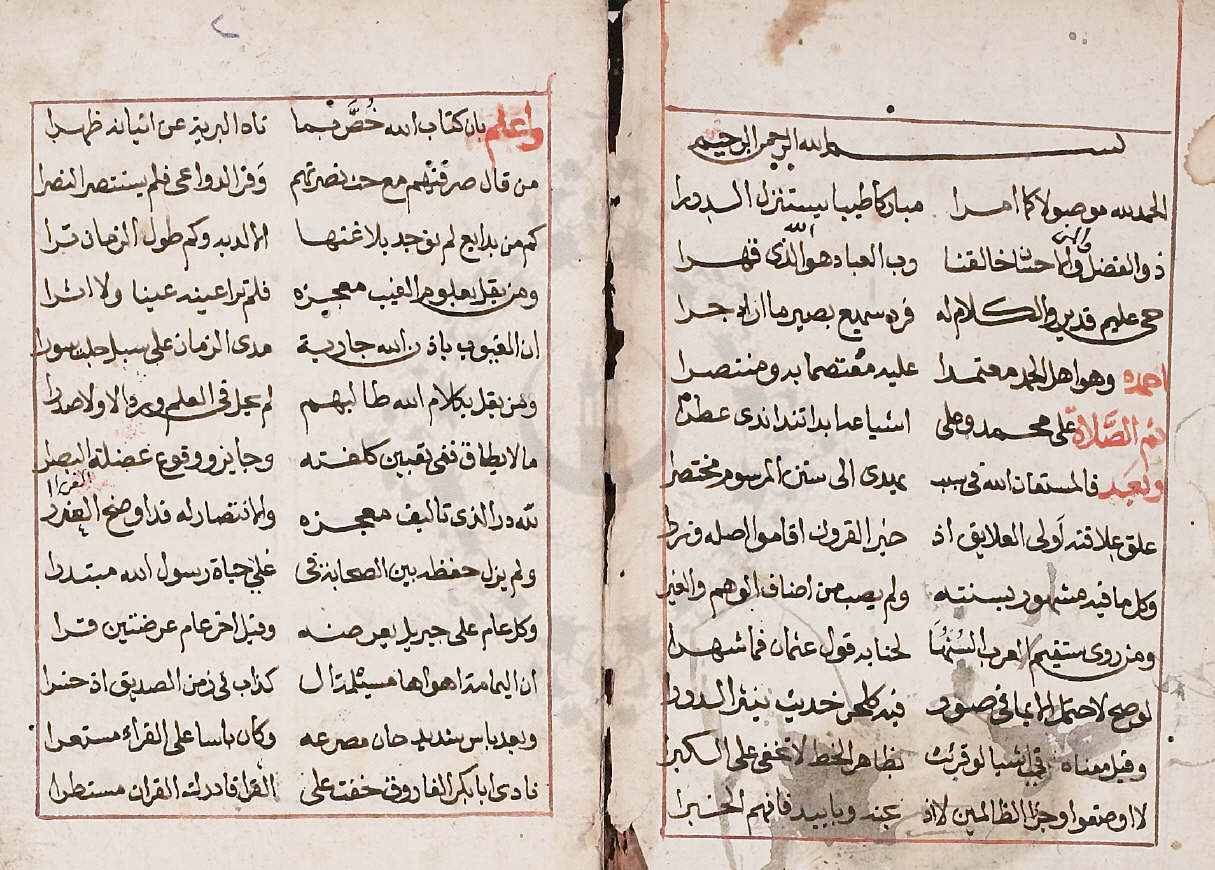 بسم الله الرحمن الرحيم
الحمد لله موصولا كما امرا مباركا طيبا يستنزل الدررا
ذو الفضل والمن والاحسان خالقنا رب العباد هو الله الذى قهرا
حى عليم قدير والكلام له فرد سميع بصير ما اراد جرا
احمده وهو اهل الحمد معتمدا عليه معتصما به ومنتصرا
ثم الصلاة على محمد وعلى اشياعه ابدا تندا ندى عطرا
وبعد فالمستعان الله فى سبب يهدى الى سنن المرسوم مختصرا
علق علاقته اولى العلايق اذ خير القرون اقاموا اصله وزرا
وكل ما فيه مشهور بسنته ولم يصب من اضاف الوهم والغيرا
ومن روى ستقيم العرب السنها لحنا به قول عثمان فما شهرا
لو صح لاحتمل الايما فى صور فيه كلحن حديث ينثر الدررا
وقيل معناه فى اشيا لو قرئت بظاهر الخط لا تخفى على الكبرا
لا اوضعوا وجزاؤ الظالمين لا اذ بحنه وباييد فافهم الخبرا
واعلم بان كتاب الله خص بما تاه البرية عن اتيانه ظهرا
من قال صرفتهم مع حث نصرتهم وفر الدواعى فلم يستنصر النصرا
كم من بدايع لم توجد بلاغتها الا لديه وكم طول الزمان ترا
ومن يقل بعلوم الغيب معجزه فلم ترا عينه عينا ولا اثرا
ان الغيوب باذن الله جارية مدى الزمان على سبل جلت سورا
ومن يقل بكلام الله طالبهم لم يحل فى العلم وردا لا ولا صدرا
ما لا يطاق ففى تعيين كلفته وجايز ووقوع عضلة البصرا
لله در الذى تاليف معجزه والانتصار له قد اوضح الغررا
ولم يزل حفظه بين الصحابة فى على حياة رسول الله مبتدرا
وكل عام على جبريل يعرضه وقيل اخر عام عرضتين قرا
ان اليمامة اهواها مسيلمة ال كذاب فى زمن الصديق اذ خسرا
وبعد باس شديد حان مصرعه وكان باسا على القراء مستعرا
نادى ابا بكر الفاروق خفت على القرا فادرك القران مستطرا